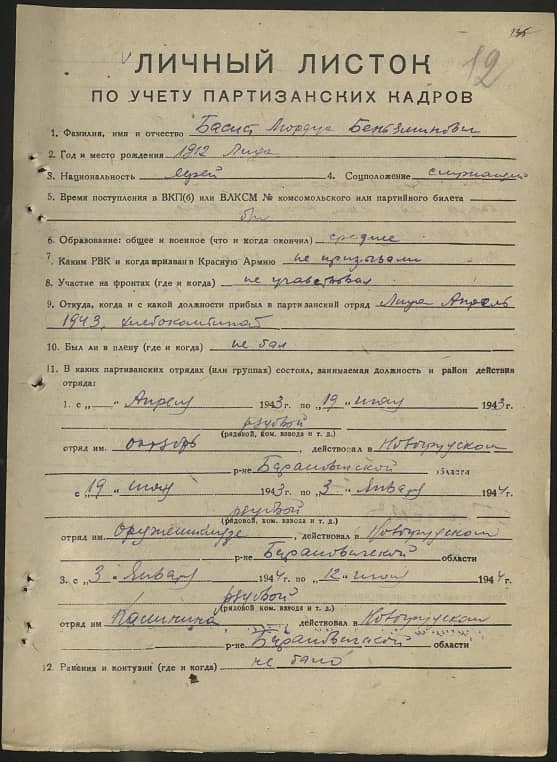 12
ЛИЧНЫЙ ЛИСТОК
ПО УЧЕТУ ПАРТИЗАНСКИХ КАДРОВ
1. Фамилия, имя и отчество Басист Мордух Беньяминович
2. Год и место рождения 1912 Лида
3. Национальность еврей 4. Соцположение служащий
5. Время поступления в ВКП(б) или ВЛКСМ № комсомольского или партийного билета
б/п
6. Образование: общее и военное (что и когда окончил) среднее
7. Каким РВК и когда призван в Красную Армию не призывали
8. Участие на фронтах (где и когда) не участвовал
9. Откуда, когда и с какой должности прибыл в партизанский отряд Лида Апрель
1943, хлебокомбинат
10. Был ли в плену (где и когда) не был
11. В каких партизанских отрядах (или группах) состоял, занимаемая должность и район действия
отряда:
1. с „ “ Апреля 1943 г. по „19“ июля 1943 г.
рядовой
(рядовой, ком. взвода и т. д.)
отряд им. октябрь, действовал в Новогрудском
р-не Барановичской области
с „19“ июля 1943 г. по „3“ Января 1944 г.
рядовой
(рядовой, ком. взвода и т. д.)
отряд им Орджоникидзе, действовал в Новогрудском
р-не Барановичской области
3. с „3“ Января 1944 г. по „12“ июля 1944 г.
рядовой
(рядовой ком. взвода и т. д.)
отряд им действовал в Новогрудском
р-не Барановичской области
12. Ранения и контузии (где и когда) не было